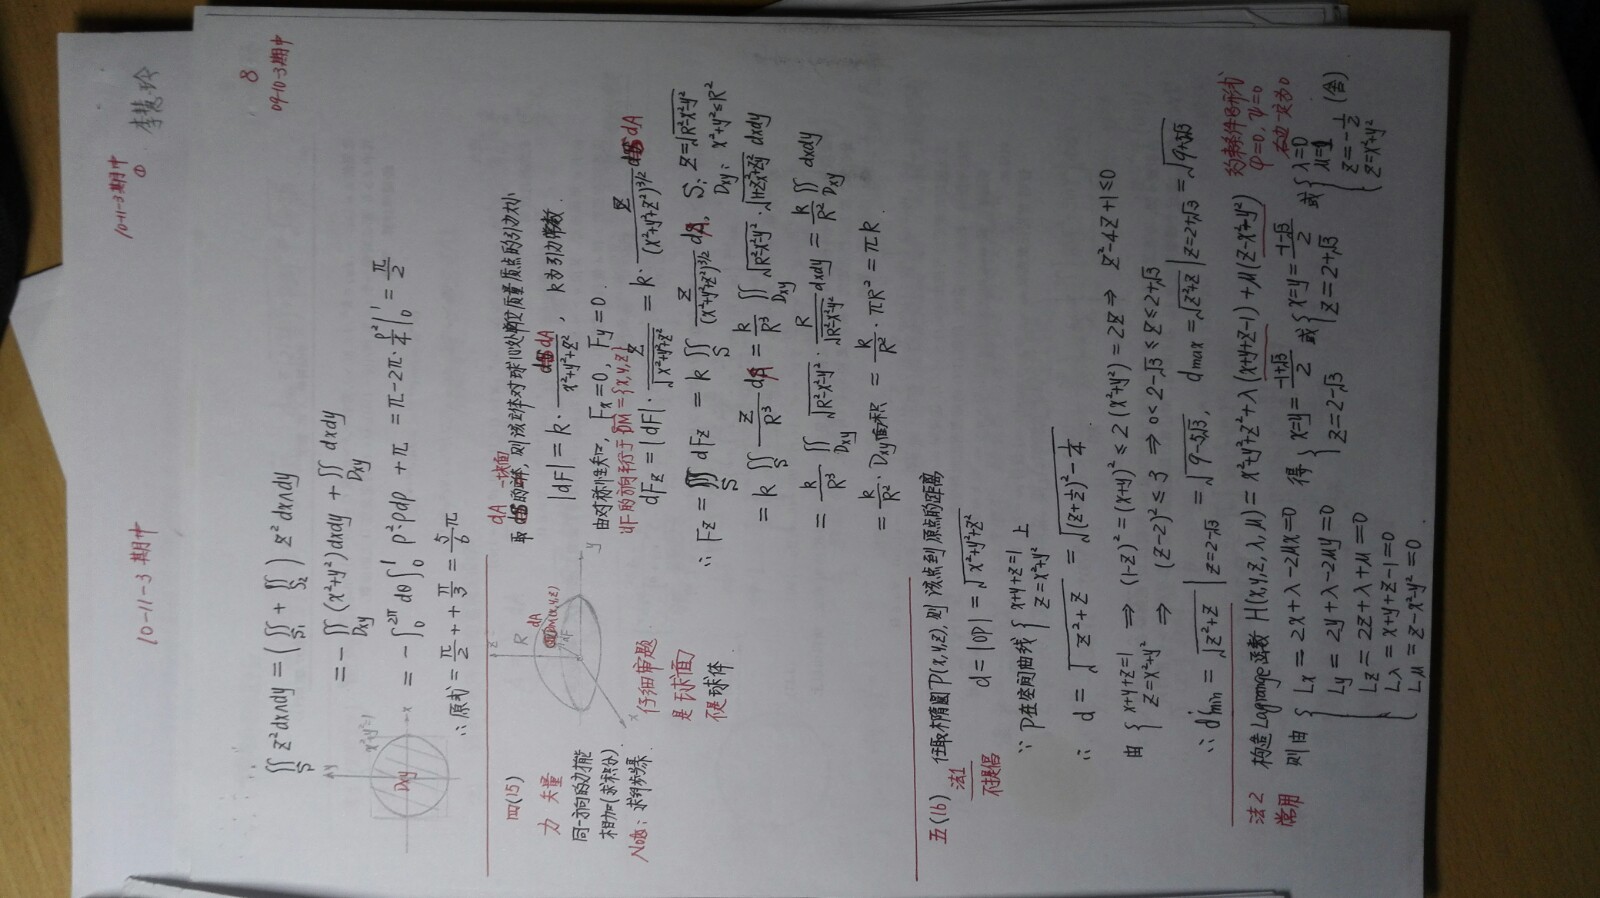 10-11-3期中
10-11-3期中
①
李慧玲
8
09-10-3期中
∬S z²dx∧dy = (∬S₁ + ∬S₂) z² dx∧dy
= -∬Dxy (x²+y²)dxdy + ∬Dxy dxdy
= -∫₀^2π dθ ∫₀¹ ρ²·ρdρ + π = π-2π·ρ⁴/4|₀¹ = π/2
y
x²+y²=1
Dxy
x
∴原式 = π/2 + π/3 = 5/6 π
四(15)
力 矢量
同一方向的力才能
相加(求积分).
Note: 求解步骤
z
R
dA
M(x,y,z)
dF
y
x
仔细审题
是球面
不是球体
dA 球面
取 的 , 则该立体对球心处单位质量质点的引力大小
|dF| = k· dA/(x²+y²+z²), k为引力常数.
由对称性知, Fx=0, Fy=0.
dF的方向平行于OM={x,y,z}
dFz = |dF|· z/√(x²+y²+z²) = k· z/(x²+y²+z²)^3/2 dA
∴ Fz = ∬S dFz = k∬S z/(x²+y²+z²)^3/2 dA, S: z=√(R²-x²-y²)
Dxy: x²+y²≤R²
= k∬S z/R³ dA = k/R³ ∬Dxy √(R²-x²-y²)·√(1+zx²+zy²) dxdy
= k/R³ ∬Dxy √(R²-x²-y²)· R/√(R²-x²-y²) dxdy = k/R² ∬Dxy dxdy
= k/R²·Dxy面积 = k/R²·πR² = πk.
五(16)
法1
不提倡
任取椭圆P(x,y,z), 则该点到原点的距离
d = |OP| = √(x²+y²+z²)
∵ P在空间曲线 { x+y+z=1 z=x²+y² 上
∴ d = √(z²+z) = √((z+½)²-¼)
由 { x+y+z=1 z=x²+y² ⇒ (1-z)² = (x+y)² ≤ 2(x²+y²) = 2z ⇒ z²-4z+1≤0
⇒ (z-2)² ≤ 3 ⇒ 0<2-√3 ≤ z ≤ 2+√3
∴ dmin = √(z²+z)|z=2-√3 = √(9-5√3), dmax = √(z²+z)|z=2+√3 = √(9+5√3)
法2
常用
构造Lagrange函数 H(x,y,z,λ,μ) = x²+y²+z²+λ(x+y+z-1)+μ(z-x²-y²)
约束条件的形式
φ=0, ψ=0
右边 为0
则由 { Lx = 2x+λ-2μx=0
Ly = 2y+λ-2μy=0
Lz = 2z+λ+μ=0
Lλ = x+y+z-1=0
Lμ = z-x²-y²=0.
得 { x=y=(-1+√3)/2 z=2-√3 或 { x=y=(-1-√3)/2 z=2+√3 或 { λ=0 μ=1 z=-½ z=x²+y² (舍)